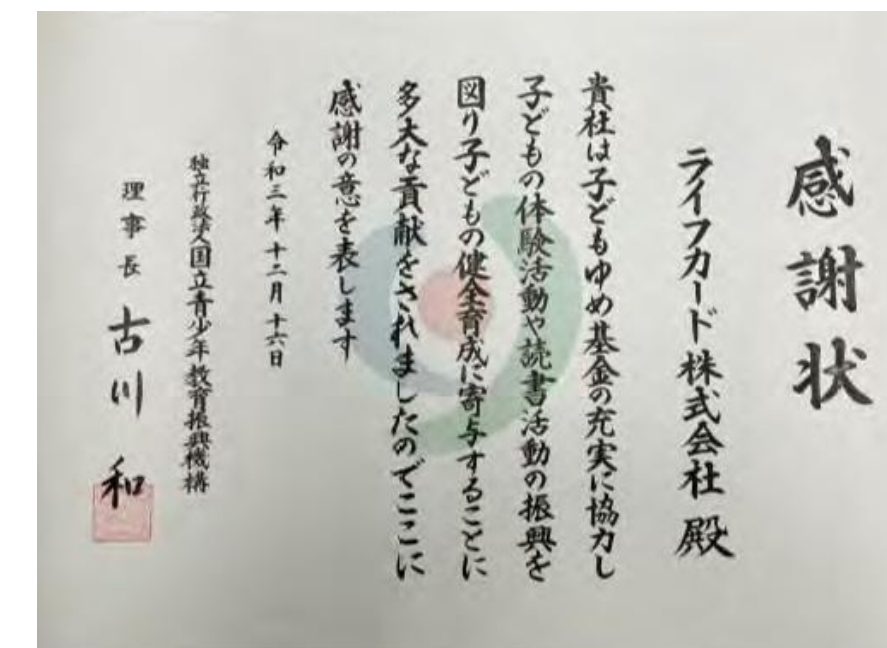 感謝状
ライフカード株式会社 殿
貴社は子どもゆめ基金の充実に協力し
子どもの体験活動や読書活動の振興を
図り子どもの健全育成に寄与することに
多大な貢献をされましたのでここに
感謝の意を表します
令和三年十二月十六日
独立行政法人国立青少年教育振興機構
理事長 古川 和